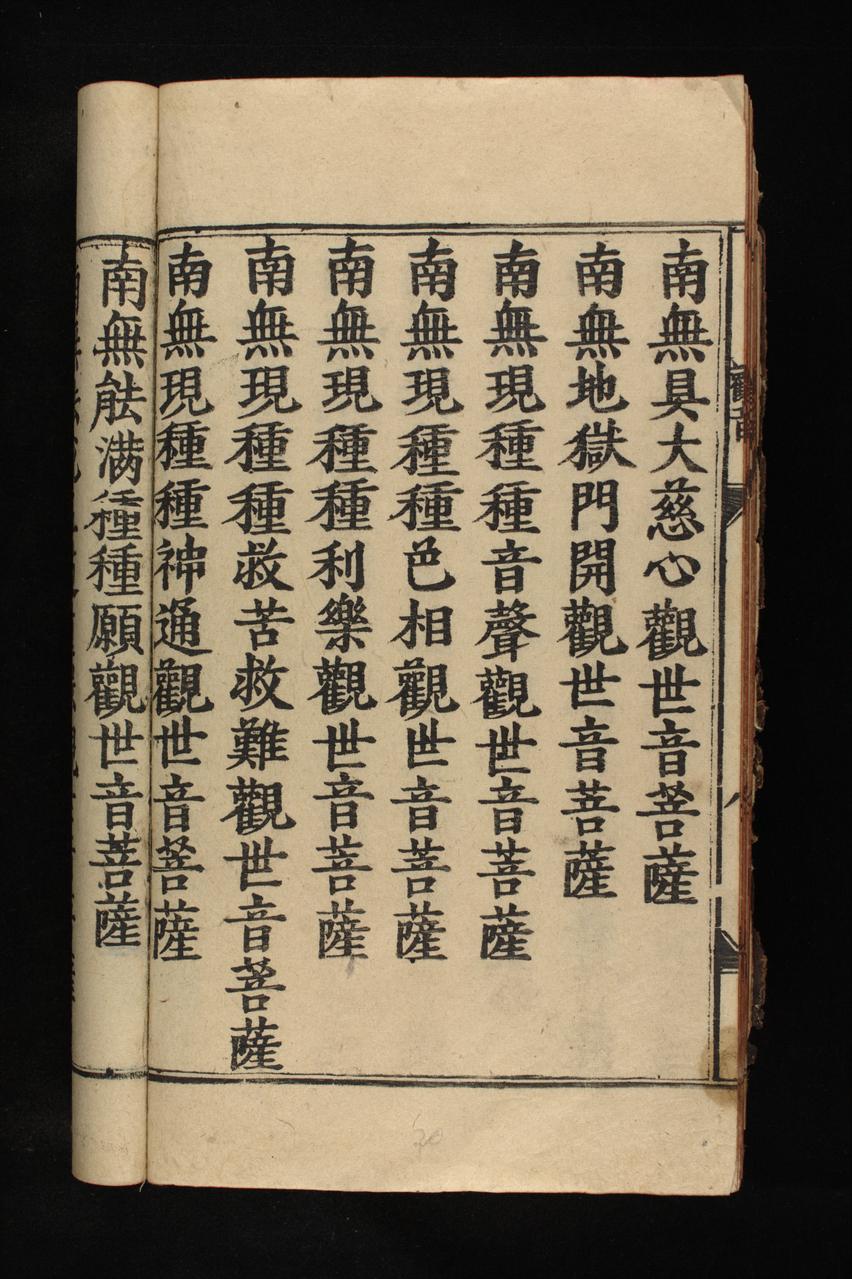 南無具大慈心觀世音菩薩
南無地獄門開觀世音菩薩
南無現種種音聲觀世音菩薩
南無現種種色相觀世音菩薩
南無現種種利樂觀世音菩薩
南無現種種救苦救難觀世音菩薩
南無現種種神通觀世音菩薩
南無能满種種願觀世音菩薩
20